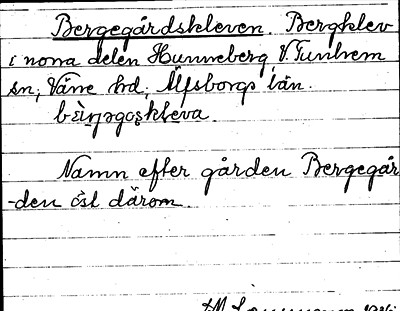 Bergegårdskleven. Bergklev
i norra delen Hunneberg V. Tunhem
sn, Väne hd, Älfsborgs län.
Namn efter gården Bergegår
-den öst därom.